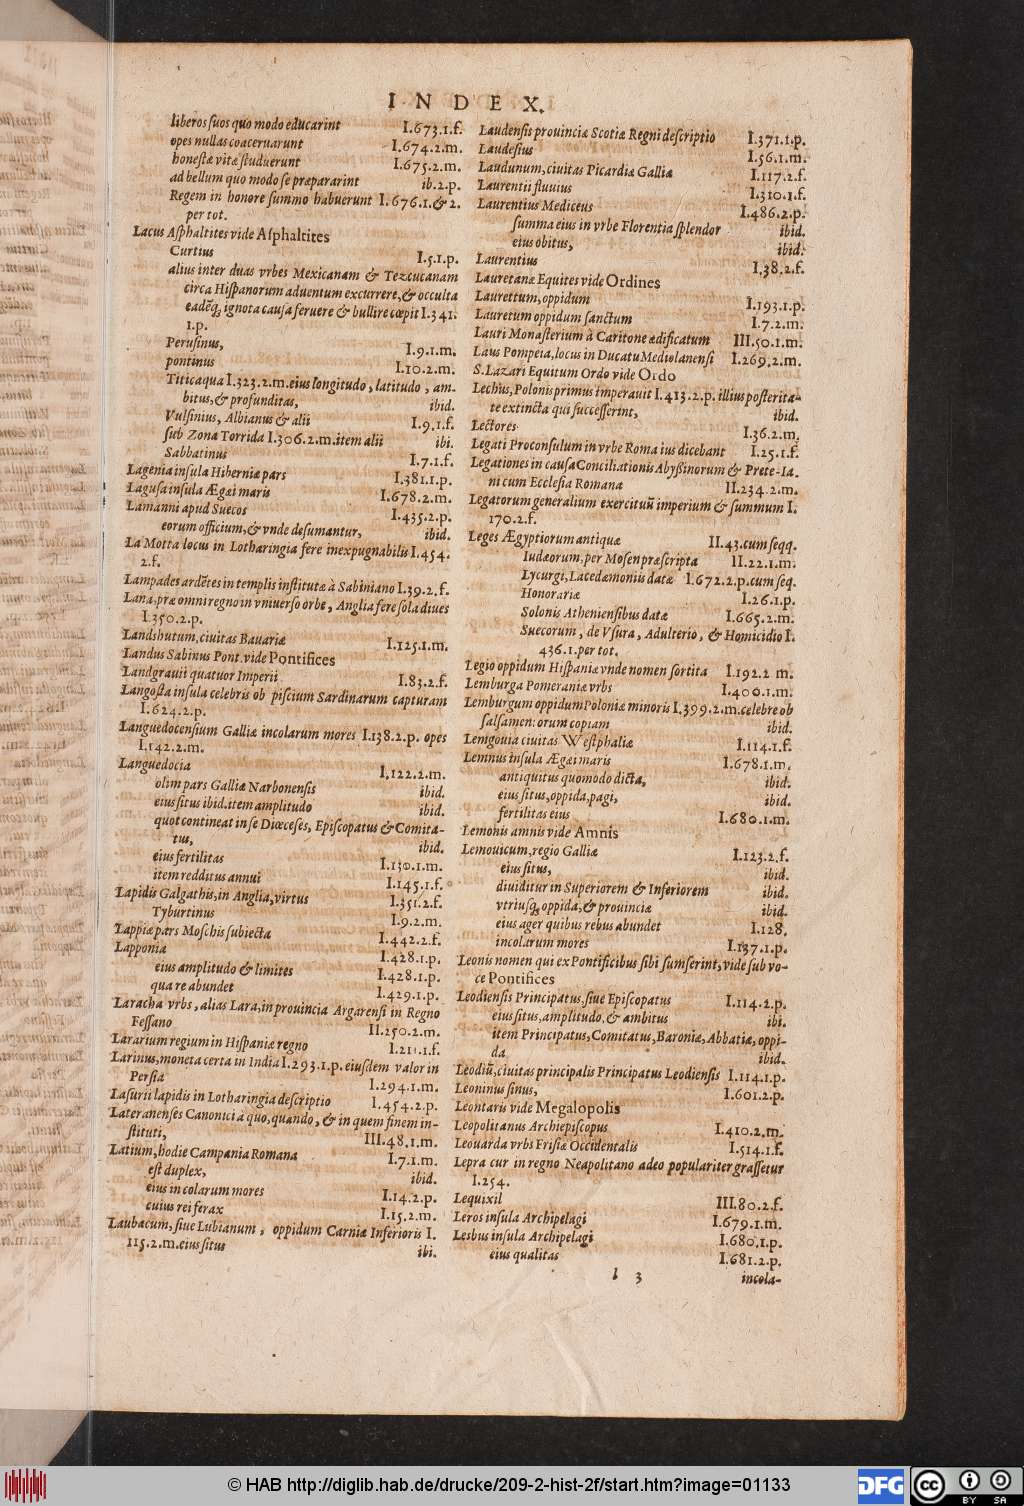 INDEX.
liberos suos quo modo educarint I.673.1.f.
opes nullas coaceruarunt I.674.2.m.
honestæ vitæ studuerunt I.675.2.m.
ad bellum quo modo se præpararint ib.2.p.
Regem in honore summo habuerunt I.676.1.& 2.
per tot.
Lacus Asphaltites vide Asphaltites
Curtius I.5.1.p.
alius inter duas vrbes Mexicanam & Tezcucanam
circa Hispanorum aduentum excurrere, & occulta
eadēq; ignota causa feruere & bullire cœpit I.341.
1.p.
Perusinus, I.9.1.m.
pontinus I.10.2.m.
Titicaqua I.323.2.m. eius longitudo, latitudo, am-
bitus, & profunditas, ibid.
Vulsinius, Albianus & alii I.9.1.f.
sub Zona Torrida I.306.2.m. item alii ibi.
Sabbatinus I.7.1.f.
Lagenia insula Hiberniæ pars I.381.1.p.
Lagusa insula Ægæi maris I.678.2.m.
Lamanni apud Suecos I.435.2.p.
eorum officium, & vnde desumantur, ibid.
La Motta locus in Lotharingia fere inexpugnabilis I.454.
2.f.
Lampades ardētes in templis institutæ à Sabiniano I.39.2.f.
Lana, præ omni regno in vniuerso orbe, Anglia fere sola diues
I.350.2.p.
Landshutum, ciuitas Bauariæ I.125.1.m.
Landus Sabinus Pont. vide Pontifices
Landgrauii quatuor Imperii I.83.2.f.
Langosta insula celebris ob piscium Sardinarum capturam
I.624.2.p.
Languedocensium Galliæ incolarum mores I.138.2.p. opes
I.142.2.m.
Languedocia I.122.2.m.
olim pars Galliæ Narbonensis ibid.
eius situs ibid. item amplitudo ibid.
quot contineat in se Diœceses, Episcopatus & Comita-
tus, ibid.
eius fertilitas I.130.1.m.
item redditus annui I.145.1.f.
Lapidis Galgathis, in Anglia, virtus I.351.2.f.
Tyburtinus I.9.2.m.
Lappiæ pars Moschis subiecta I.442.2.f.
Lapponia I.428.1.p.
eius amplitudo & limites I.428.1.p.
qua re abundet I.429.1.p.
Laracha vrbs, alias Lara, in prouincia Argarensi in Regno
Fessano II.250.2.m.
Lararium regium in Hispaniæ regno I.211.f.
Larinus, moneta certa in India I.293.1.p. eiusdem valor in
Persia I.294.1.m.
Lasurii lapidis in Lotharingia descriptio I.454.2.p.
Lateranenses Canonici a quo, quando, & in quem finem in-
stituti, III.48.1.m.
Latium, hodie Campania Romana I.7.1.m.
est duplex, ibid.
eius incolarum mores I.14.2.p.
cuius rei ferax I.15.2.m.
Laubacum, siue Lubianum, oppidum Carniæ Inferioris I.
115.2.m. eius situs ibi.
Laudensis prouinciæ Scotiæ Regni descriptio I.371.1.p.
Laudesius I.56.1.m.
Laudunum, ciuitas Picardiæ Galliæ I.117.2.f.
Laurentii fluuius I.310.1.f.
Laurentius Mediceus I.486.2.p.
summa eius in vrbe Florentia splendor ibid.
eius obitus, ibid.
Laurentius I.38.2.f.
Lauretanæ Equites vide Ordines
Laurettum, oppidum I.193.1.p.
Lauretum oppidum sanctum I.7.2.m.
Lauri Monasterium à Caritone ædificatum III.50.1.m.
Laus Pompeia, locus in Ducatu Mediolanensi I.269.2.m.
S. Lazari Equitum Ordo vide Ordo
Lechus, Polonis primus imperauit I.413.2.p. illius posterita-
te extincta qui successerint, ibid.
Lectores I.36.2.m.
Legati Proconsulum in vrbe Roma ius dicebant I.25.1.f.
Legationes in causa Conciliationis Abyssinorum & Prete-Ia-
ni cum Ecclesia Romana II.234.2.m.
Legatorum generalium exercituū imperium & summum I.
170.2.f.
Leges Ægyptiorum antiquæ II.43.cum seqq.
Iudæorum, per Mosen præscripta II.22.1.m.
Lycurgi, Lacedæmoniis datæ I.672.2.p. cum seq.
Honorariæ I.26.1.p.
Solonis Atheniensibus datæ I.665.2.m.
Suecorum, de Vsura, Adulterio, & Homicidio I.
436.1.per tot.
Legio oppidum Hispaniæ vnde nomen sortita I.192.2 m.
Lemburga Pomeraniæ vrbs I.400.1.m.
Lemburgum oppidum Poloniæ minoris I.399.2.m. celebre ob
salsamentorum copiam ibid.
Lemgouia ciuitas Westphaliæ I.114.1.f.
Lemnus insula Ægæi maris I.678.1.m.
antiquitus quomodo dicta, ibid.
eius situs, oppida, pagi, ibid.
fertilitas eius I.680.1.m.
Lemonis amnis vide Amnis
Lemouicum, regio Galliæ I.123.2.f.
eius situs, ibid.
diuiditur in Superiorem & Inferiorem ibid.
vtriusq; oppida, & prouinciæ ibid.
eius ager quibus rebus abundet I.128.
incolarum mores I.137.1.p.
Leonis nomen qui ex Pontificibus sibi sumserint, vide sub vo-
ce Pontifices
Leodiensis Principatus, siue Episcopatus I.114.2.p.
eius situs, amplitudo, & ambitus ibi.
item Principatus, Comitatus, Baroniæ, Abbatiæ, oppi-
da ibid.
Leodiū, ciuitas principalis Principatus Leodiensis I.114.1.p.
Leoninus sinus, I.601.2.p.
Leontaris vide Megalopolis
Leopolitanus Archiepiscopus I.410.2.m.
Leouarda vrbs Frisiæ Occidentalis I.514.1.f.
Lepra cur in regno Neapolitano adeo populariter grassetur
I.254.
Lequixil III.80.2.f.
Leros insula Archipelagi I.679.1.m.
Lesbus insula Archipelagi I.680.1.p.
eius qualitas I.681.2.p.
l 3 incola-
© HAB http://diglib.hab.de/drucke/209-2-hist-2f/start.htm?image=01133
DFG
cc BY SA